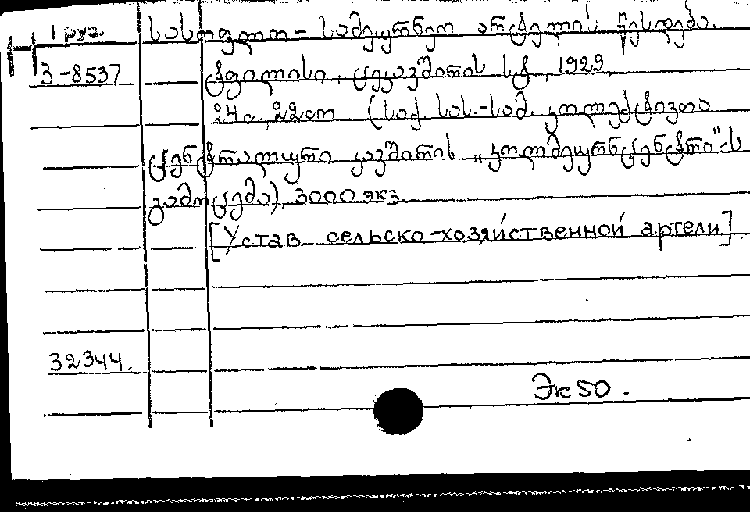 1 груз.
სასოფლო-სამეურნეო არტელის წესდება.
3-8537
ტფილისი, ცეკავშირის სტ., 1929,
24 გ., 22 სთ (საქ. სას.-სამ. კოლექტივთა
ცენტრალური კავშირის „კოლმეურნცენტრი"-ს
გამოცემა), 3000 экз.
[Устав сельско-хозяйственной артели]
32344.
Эк 50.